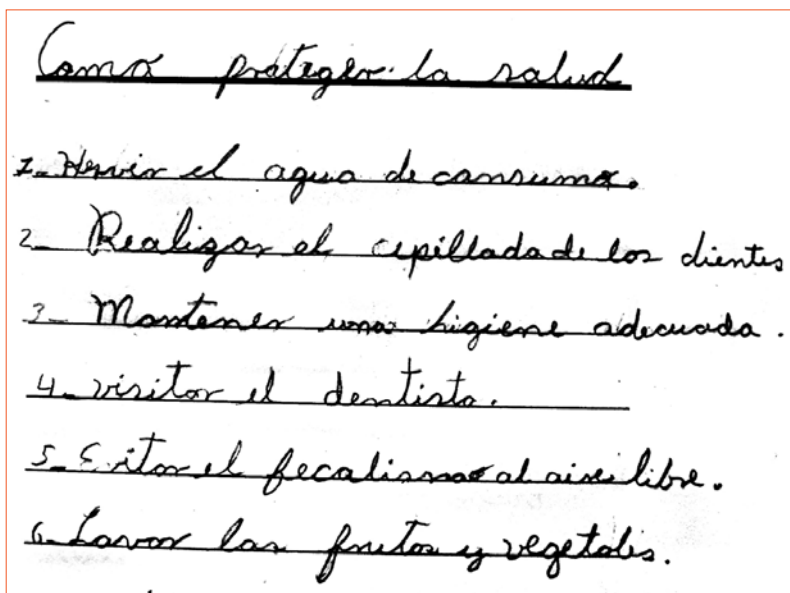 Como proteger la salud
1- Hervir el agua de consumo.
2- Realizar el cepillado de los dientes
3- Mantener una higiene adecuada.
4- visitar el dentista.
5- Evitar el fecalismo al aire libre.
6- Lavar las frutas y vegetales.